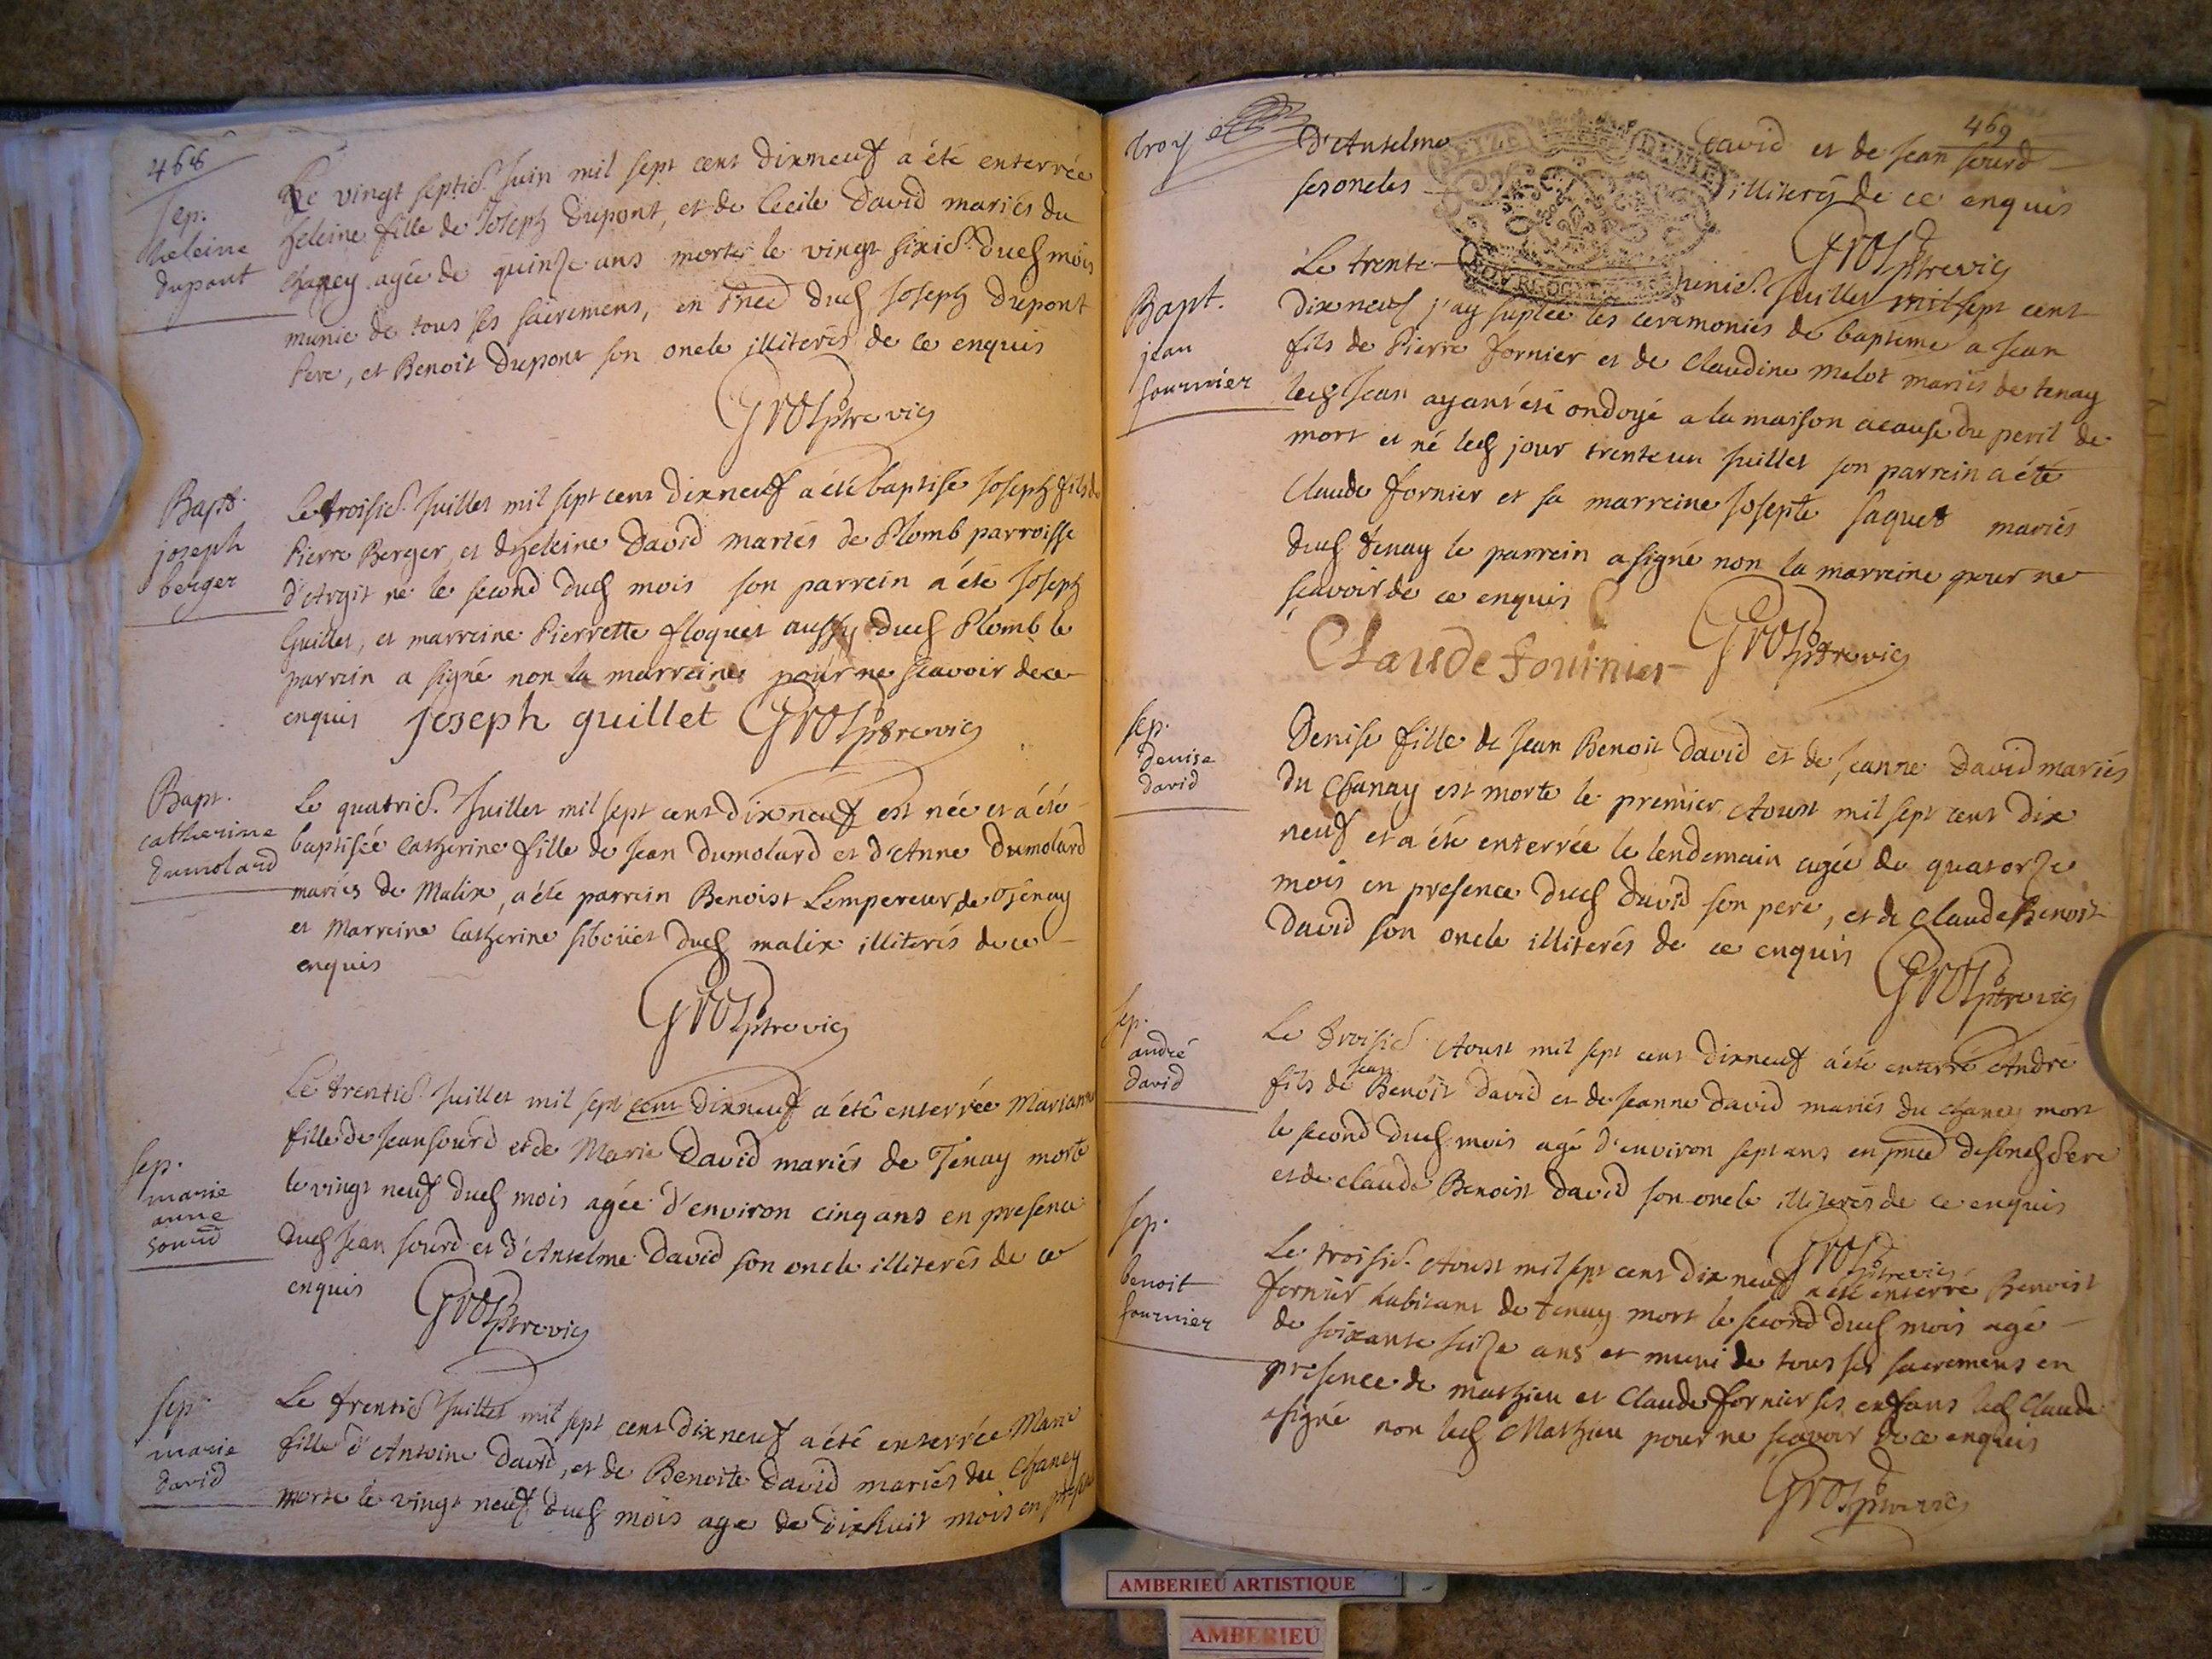 468
Sep.
heleine
dupont
Le vingt septie. Juin mil sept cent dixneuf a été enterrée
heleine fille de Joseph Dupont, et de Cecile David mariés du
Chaney agée de quinze ans morte le vingt sixie. dud mois
munie de tous ses sacremens, en pnce dud Joseph Dupont
Pere, et Benoit Dupont son oncle illiterés de ce enquis
Gros ptre vic
Bapt.
joseph
berger
Le troisie. Juillet mil sept cent dixneuf a été baptisé Joseph fils de
Pierre Berger, et d'heleine David mariés de Plomb parroisse
d'Argit né le second dud mois son parrein a été Joseph
Guillet, et marreine Pierrette floquet aussy dud Plomb le
parrein a signé non la marreine pour ne scavoir de ce
enquis joseph guillet Gros ptre vic
Bapt.
catherine
dumolard
Le quatrie. Juillet mil sept cent dixneuf est née et a été
baptisée Catherine fille de Jean Dumolard et d'Anne Dumolard
mariés de Malix, a été parrein Benoist Lempereur de Tenay
et Marreine Catherine siboüet dud malix illiterés de ce
enquis
Gros ptre vic
Sep.
marie
anne
sourd
Le trentie. Juillet mil sept cent dixneuf a été enterrée Marianne
fille de Jean Sourd et de Marie David mariés de Tenay morte
le vingt neuf dud mois agée d'environ cinq ans en presence
dud Jean Sourd et d'Anselme David son oncle illiterés de ce
enquis
Gros ptre vic
Sep.
marie
david
Le trentie Juillet mil sept cent dixneuf a été enterrée Marie
fille d'Antoine David, et de Benoite David mariés du Chaney
morte le vingt neuf dud mois age de dixhuit mois en presence
469
d'Anselme David et de Jean Sourd
ses oncles illiterés de ce enquis
Gros ptre vic
SEIZE DENIE
Bapt.
jean
fournier
Le trente unie. Juillet mil sept cent
dixneuf j'ay suplée les ceremonies de baptême a Jean
fils de Pierre fornier et de Claudine Melot mariés de tenay
led Jean ayant été ondoyé a la maison acause du peril de
mort et né led jour trente un Juillet son parrein a été
Claude fornier et sa marreine Josepte Jaquet mariés
dud tenay le parrein a signé non la marreine pour ne
scavoir de ce enquis
Claude fournier Gros ptre vic
Sep.
denise
david
Denise fille de Jean Benoit David et de Jeanne David mariés
du Chanay est morte le premier Aoust mil sept cent dix
neuf et a été enterrée le lendemain agée de quatorze
mois en presence dud David son pere, et de Claude Benoit
David son oncle illiterés de ce enquis
Gros ptre vic
Sep.
andré
david
Le troisie Aoust mil sept cent dixneuf a été enterré André
fils de Jean Benoit David et de Jeanne David mariés du Chaney mort
le second dud mois agé d'environ sept ans en pnce de sond Pere
et de Claude Benoist David son oncle illiterés de ce enquis
Gros ptre vic
Sep.
benoit
fournier
Le troisie. Aoust mil sept cent dix neuf a été enterré Benoist
fornier habitant de tenay mort le second dud mois agé
de soixante seize ans et muni de tous ses sacremens en
presence de mathieu et Claude fornier ses enfans led Claude
a signé non led Mathieu pour ne scavoir de ce enquis
Gros ptre vic
AMBERIEU ARTISTIQUE
AMBERIEU